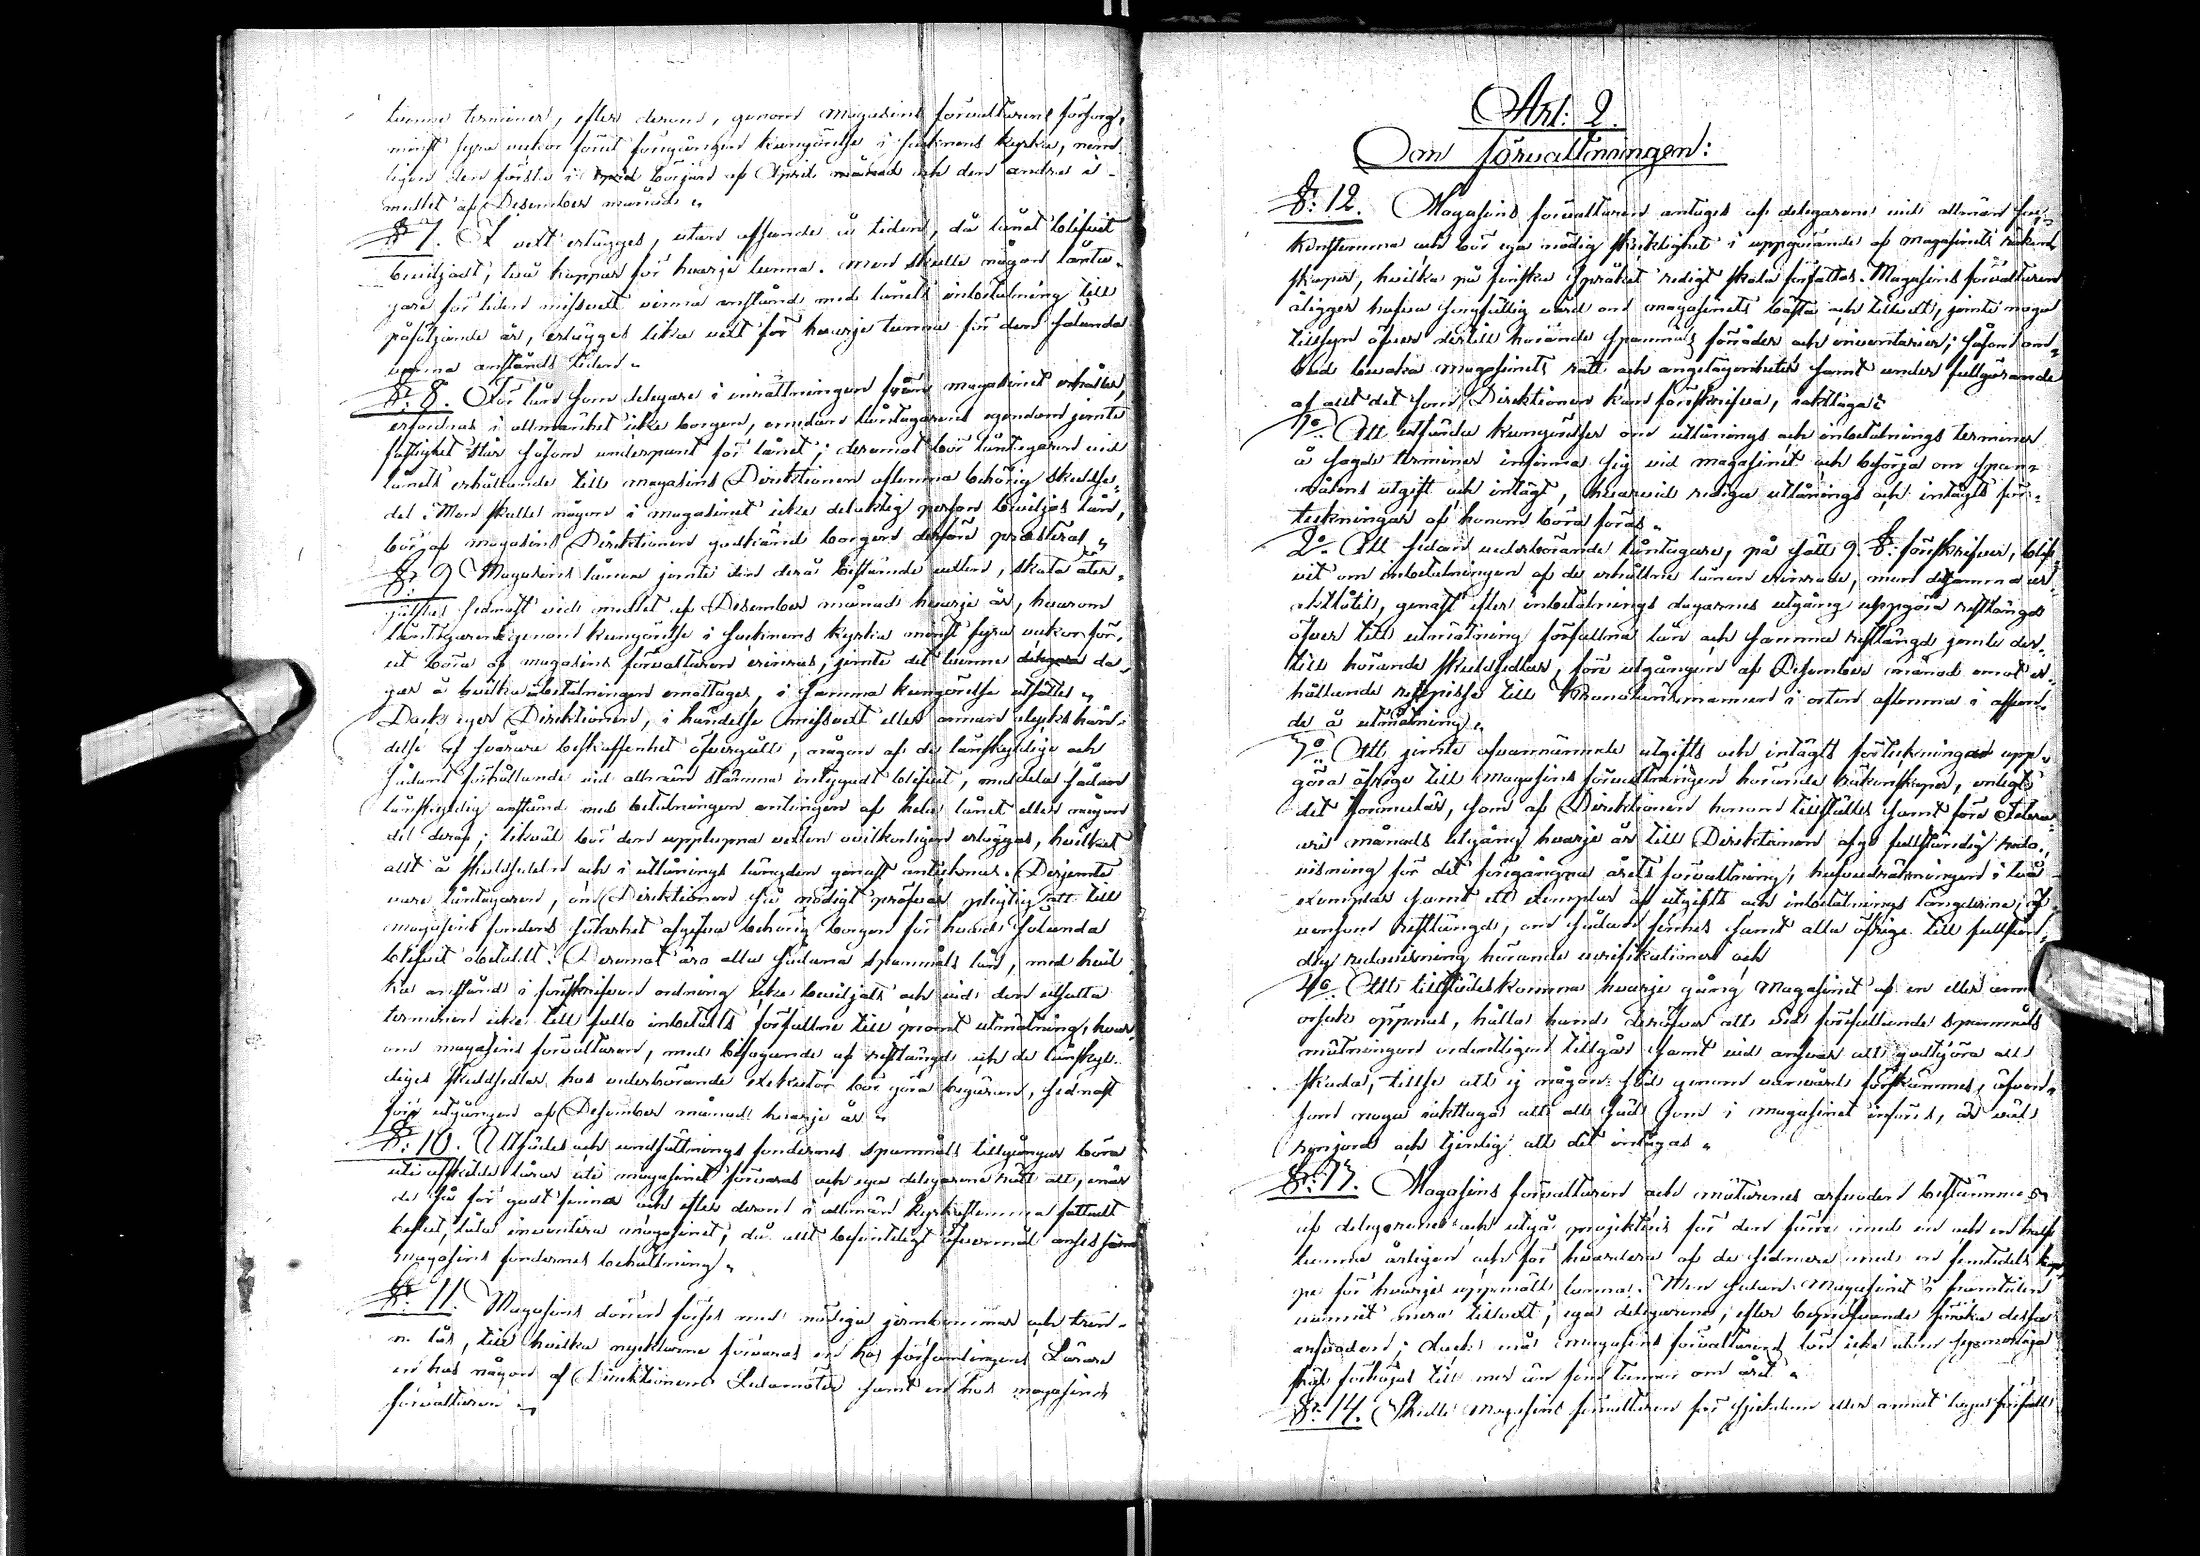 tvenne terminer, efter derom, genom Magasins förvaltarens försorg,
minst fyra veckor förut föregången kungörelse i socknens kyrka, nem-
ligen den första i början af April månad och den andra i
medlet af December månad.
§: 7. I vext erlägges, utan afseende å tiden, då lånet blifvit
beviljadt, två kappar för hvarje tunna. Men skulle någon lånta-
gare för liden missvext vinna anstånd med lånets inbetalning till
påföljande år, erlägges lika vext för hvarje tunna för den sålunda
vunna anstånds tiden.
§: 8. För lån som delegare i inrättningen från magasinet erhåller,
erfordras i allmänhet icke borgen, emedan låntagarens egendom jemte
fastighet står såsom underpant för lånet; deremot bör låntagaren vid
lånets erhållande till magasins Direktionen aflemna behörig skuldse-
del. Men skulle någon i magasinet icke delaktig person beviljas lån,
bör af magasins Direktionen godkänd borgen derföre presteras.
§: 9 Magasins lånen jemte den derå bestämde vexten, skola åter-
gäldas sednast vid medlet af December månad hvarje år, hvarom
låntagarene genom kungörelse i socknens kyrka minst fyra veckor för-
ut böra af magasins förvaltaren erinras, jemte det tvenne delegare da-
gar å hvilka betalningen emottages, i samma kungörelse utsättes.
Dock eger Direktionen, i händelse missvext eller annan olycks hän-
delse af svårare beskaffenhet öfvergått, någon af de lånskyldige och
sådant förhållande vid allmän stämma intygadt blifvit, meddela sådan
lånskyldig anstånd med betalningen antingen af hela lånet eller någon
del deraf; likväl bör den upplupna vexten ovilkorligen erläggas, hvilket
allt å skuldsedeln och i utlånings längden genast antecknas. Derjemte
vare låntagaren, om Direktionen så nödigt pröfvar pligtig att till
magasins fondens säkerhet afgifva behörig borgen för hvad sålunda
blifvit obetaldt. Deremot äro alla sådana spannmåls lån, med hvil-
ka anstånd i föreskrifven ordning icke beviljats och vid den utsatta
terminen icke till fullo inbetalts förfallne till promt utmätning, hvar-
om magasins förvaltaren, med bifogande af restlängd och de lånskyl-
diges skuldsedlar hos vederbörande exekutor bör göra begäran, sednast
före utgången af December månad hvarje år.
§: 10. Utsädes och undsättnings fondernes spannmåls tillgångar böra
uti afskilda lårar uti magasinet förvaras och ega delegarene rätt att, när
de så för godt finna och efter derom i allmän kyrkostemma fattadt
beslut, låta inventera magasinet, då allt befintligt öfvermål anses såsom
magasins fondernes behållning.
§: 11. Magasins dörren förses med nödiga jernbommar och tren-
ne lås, till hvilka nycklarne förvaras en hos församlingens Lärare
en hos någon af Direktionens Ledamöter samt en hos magasins
förvaltaren.
Art: 2.
Om förvaltningen:
§: 12. Magasins förvaltaren antages af delegarene vid allmän soc-
kenstemma och bör ega nödig skicklighet i uppgörande af magasinets räken-
skaper, hvilka på finska språket redigt skola författas. Magasins förvaltaren
åligger hafva sorgfällig vård om magasinets bästa och tillvext, jemte noga
tillsyn öfver dertill hörande spannmåls förråder och inventarier; såsom om-
bud bevaka magasinets rätt och angelägenheter samt under fullgörande
af allt det som Direktionen kan föreskrifva, iakttaga:
1o. Att utfärda kungörelser om utlånings och inbetalnings terminer
å sagde terminer infinna sig vid magasinet och besörja om spann-
målens utgift och intägt, hvarvid rediga utlånings och intägts för-
teckningar af honom böra föras.
2o. Att sedan vederbörande låntagare, på sätt 9. §: föreskrifver, blif-
vit om inbetalningen af de erhållne lånen erinrade, men detsamma ur-
aktlåtit, genast efter inbetalnings dagarnes utgång uppgöra restlängd
öfver till utmätning förfallna lån och samma restlängd jemte der-
till hörande skuldsedlar, före utgången af December månad emot er-
hållande recepisse till Kronolänsmannen i orten aflemna i afseen-
de å utmätning.
3o. Att jemte ofvannämnde utgifts och intägts förteckningar upp-
göra öfrige till Magasins förvaltningen hörande räkenskaper, enligt
det formulär, som af Direktionen honom tillställes samt före Febru-
arii månads utgång hvarje år till Direktionen afge fullständig redo-
visning för det föregångna årets förvaltning, hufvudräkningen i två
exemplar samt ett exemplar af utgifts och inbetalnings längderne, äf-
vensom restlängd, om sådan finnes samt alla öfrige till fullstän-
dig redovisning hörande verifikationer och
4o. Att tillstädeskomma hvarje gång Magasinet af en eller annan
orsak öppnas, hålla hand deröfver att vid förefallande spannmåls
mätningen ordentligen tillgår samt vid ansvar att godtgöra all
skada, tillse att ej någon säd genom vanvård förskämmes, äfven-
som noga iakttaga att all säd som i magasinet införes, är väl
rengjord och tjenlig att det intagas.
§: 13. Magasins förvaltaren och mätarenes arfvoden bestämmes
af delegarene och utgå projektvis för den förre med en och en half
tunna årligen och för hvardera af de sednare med en femtedels kap-
pe för hvarje uppmätt tunna. Men sedan Magasinet i framtiden
vunnit mera tillvext, ega delegarene, efter bepröfvande föröka dessa
arfvoden; dock må magasins förvaltarens lön icke utan synnerliga
skäl förhöjas till mer än fem tunnor om året.
§: 14. Skulle Magasins förvaltaren för sjukdom eller annat laga förfall